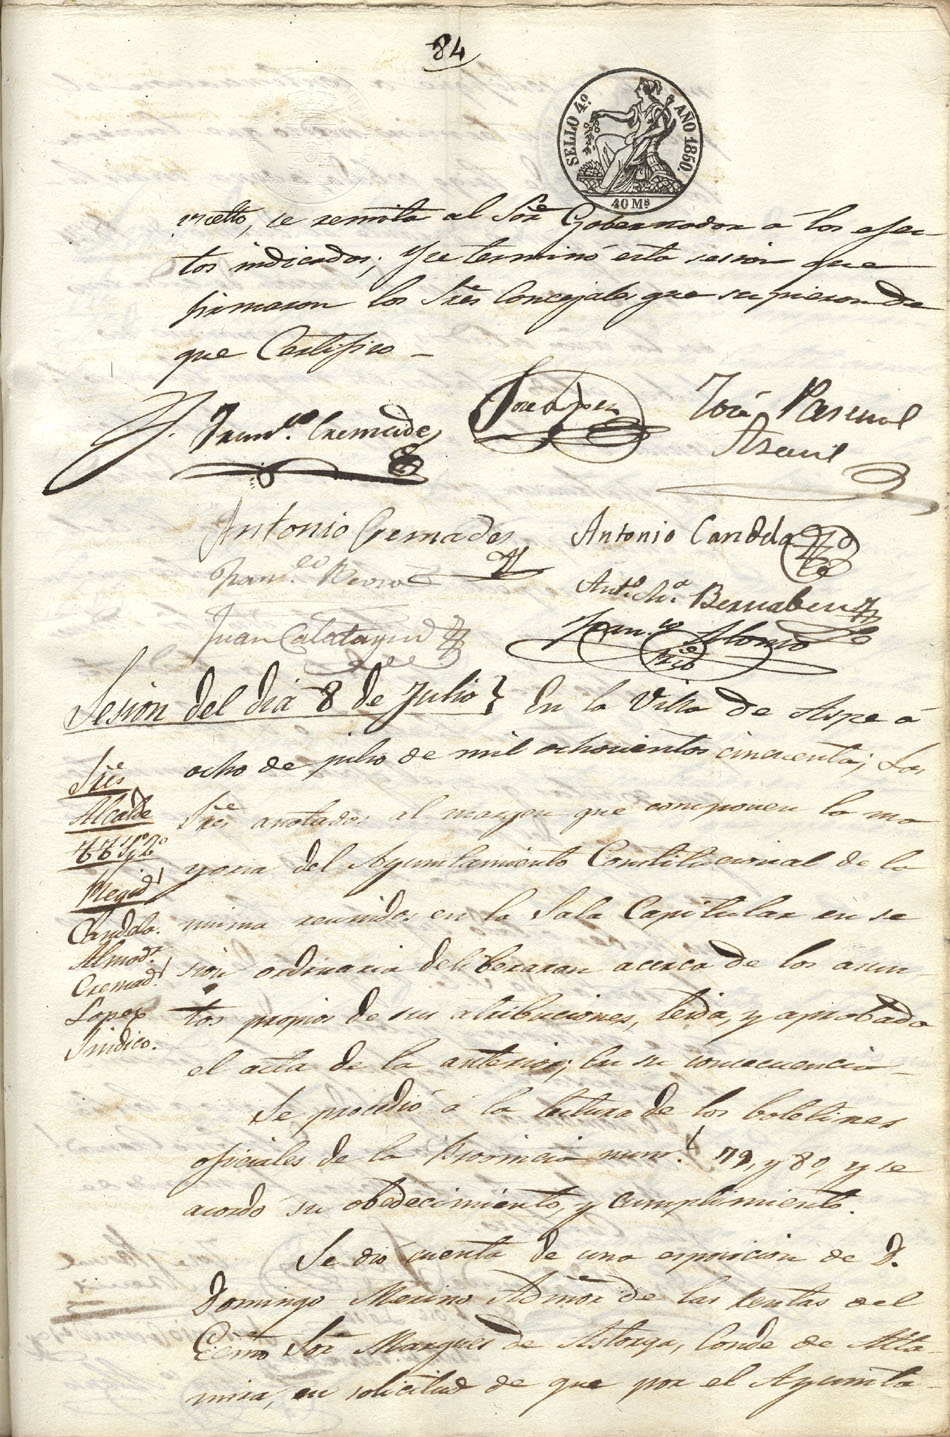 84
SELLO 4º. AÑO 1850.
40 Ms
suelto, se remita al Sor. Gobernador á los efec-
tos indicados; Y se terminó esta sesion que
firmaron los Sres. Concejales que supieron de
que Certifico —
Franco. Cremades
Jose Lopez
Tomás Pascual
Asencil
Antonio Cremades
Antonio Candela
Franco.
Anto. Ma. Bernabeu
Juan Calatayud
Franco Alonso
Srio
Sesion del dia 8 de Julio} En la Villa de Aspe á
ocho de julio de mil ochocientos cincuenta; Los
Sres. anotados al margen que componen la ma
yoria del Ayuntamiento Constitucional de la
misma reunidos en la Sala Capitular en se
sion ordinaria deliberaran acerca de los asun-
tos propios de sus atribuciones, leida, y aprobada
el acta de la anterior; En su consecuencia —
Sres.
Alcalde
TT 1º y 2º
Regid.
Candela.
Almod.
Cremad.
Lopez
Sindico.
Se procedió á la lectura de los boletines
oficiales de la Provincia num. 79, y 80, y se
acordó su obedecimiento, y cumplimiento.
Se dió cuenta de una esposicion de D.
Domingo Merino Admor. de las rentas del
Ecmo Sor. Marques de Astorga, Conde de Alta-
mira, en solicitud de que por el Ayunta-